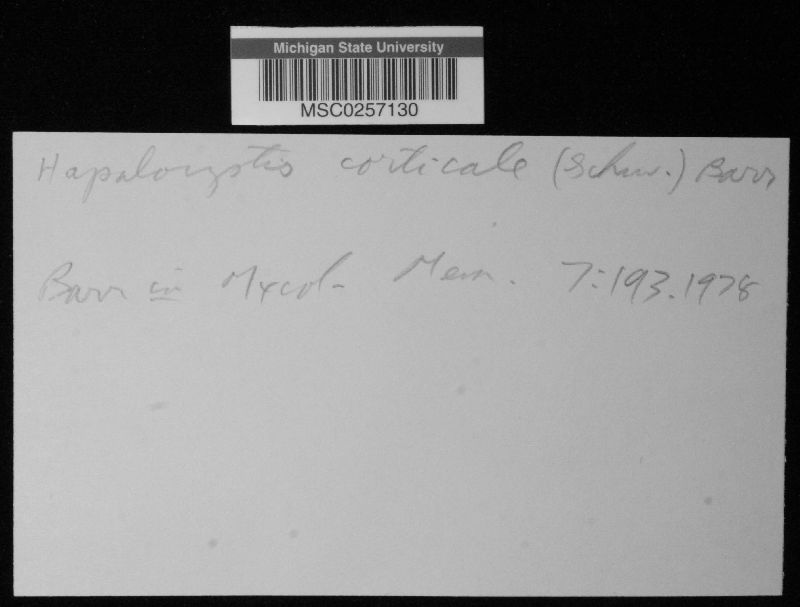 Michigan State University
MSC0257130
Hapalocystis corticale (Schw.) Barr
Barr in Mycol. Mem. 7:193.1978